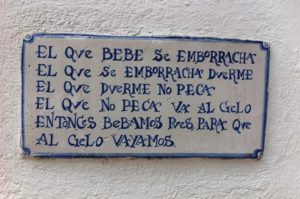 EL QUE BEBE SE EMBORRACHA
EL QUE SE EMBORRACHA DUERME
EL QUE DUERME NO PECA
EL QUE NO PECA VA AL CIELO
ENTONCES BEBAMOS PUES, PARA QUE
AL CIELO VAYAMOS.